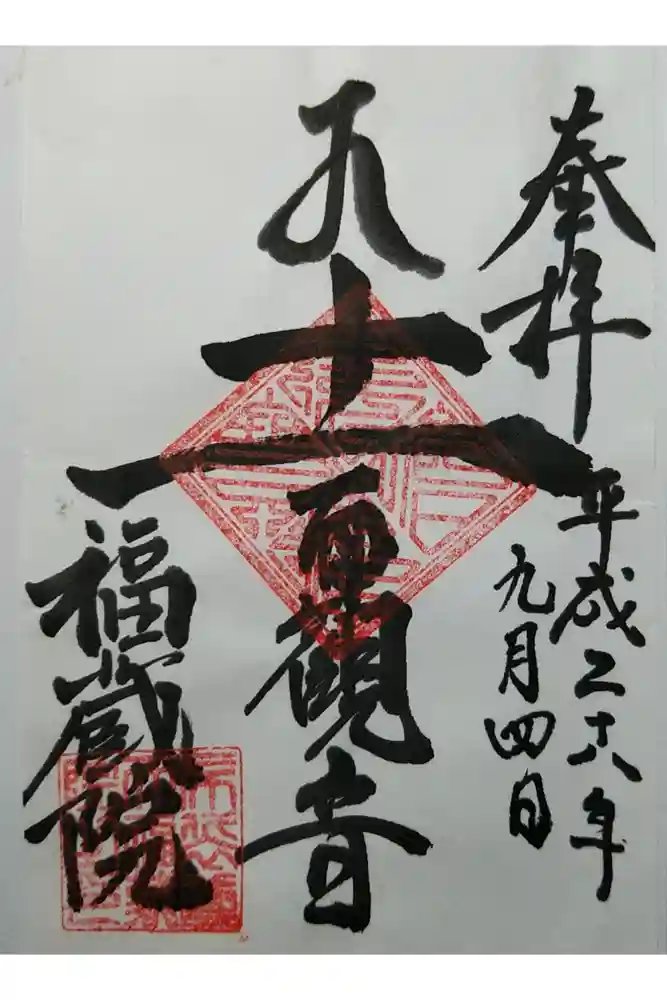 奉拝
平成二六年
九月四日
十一面観音
福蔵院